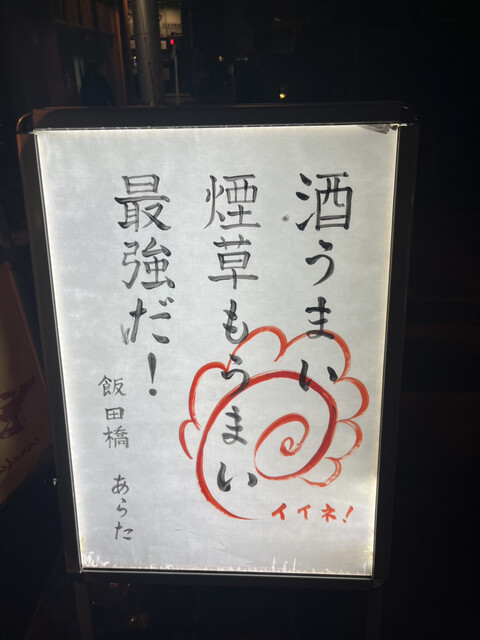 酒うまい
煙草もうまい
最強だ!
飯田橋 あらた
イイネ!